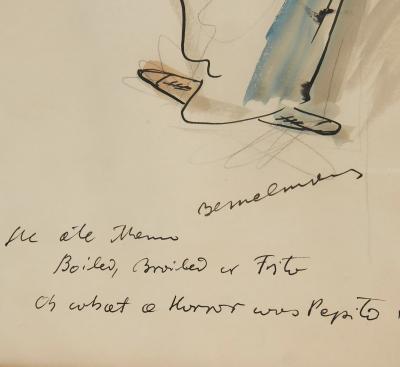 Bemelmans
He ate them
Boiled, Broiled or Frito
Oh what a Horror was Pepito